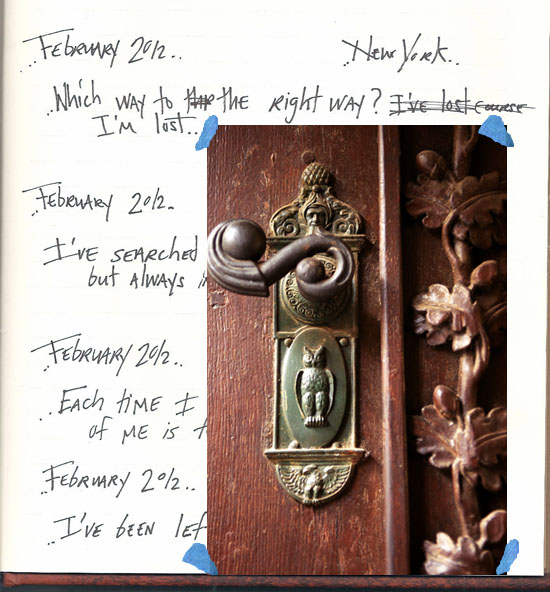 February 2012..
New York..
Which way to the right way?
I'm lost..
February 2012..
I've searched
but always
February 2012..
Each time I
of me is
February 2012..
I've been